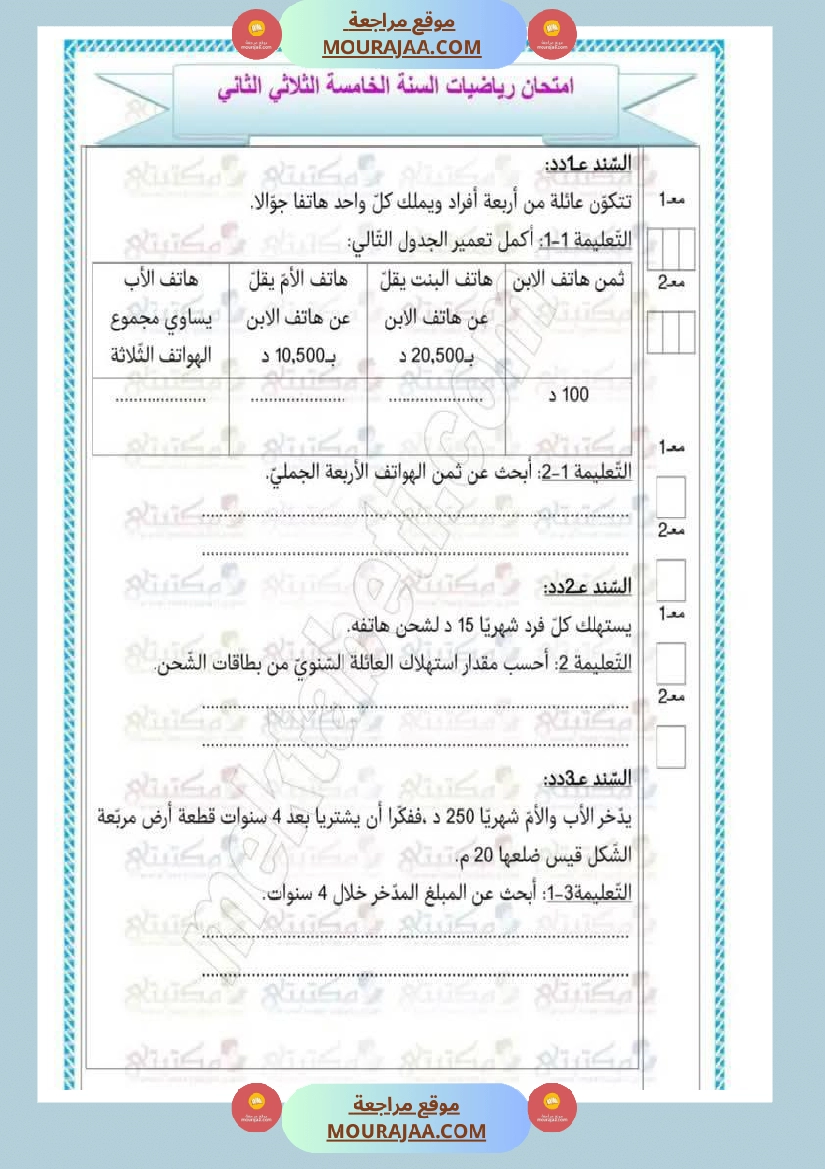 موقع مراجعة
MOURAJAA.COM
امتحان رياضيات السنة الخامسة الثلاثي الثاني
السّند عـ1ـدد:
تتكوّن عائلة من أربعة أفراد ويملك كلّ واحد هاتفا جوّالا.
معـ1
التّعليمة 1-1: أكمل تعمير الجدول التّالي:
معـ2
ثمن هاتف الابن
هاتف البنت يقلّ
عن هاتف الابن
بـ20,500 د
هاتف الأمّ يقلّ
عن هاتف الابن
بـ10,500 د
هاتف الأب
يساوي مجموع
الهواتف الثّلاثة
100 د
....................
....................
....................
معـ1
التّعليمة 1-2: أبحث عن ثمن الهواتف الأربعة الجمليّ.
معـ2
السّند عـ2ـدد:
يستهلك كلّ فرد شهريّا 15 د لشحن هاتفه.
معـ1
التّعليمة 2: أحسب مقدار استهلاك العائلة السّنويّ من بطاقات الشّحن.
معـ2
السّند عـ3ـدد:
يدّخر الأب والأمّ شهريّا 250 د ،ففكّرا أن يشتريا بعد 4 سنوات قطعة أرض مربّعة
الشّكل قيس ضلعها 20 م.
التّعليمة3-1: أبحث عن المبلغ المدّخر خلال 4 سنوات.
mektabeti.com
موقع مراجعة
MOURAJAA.COM